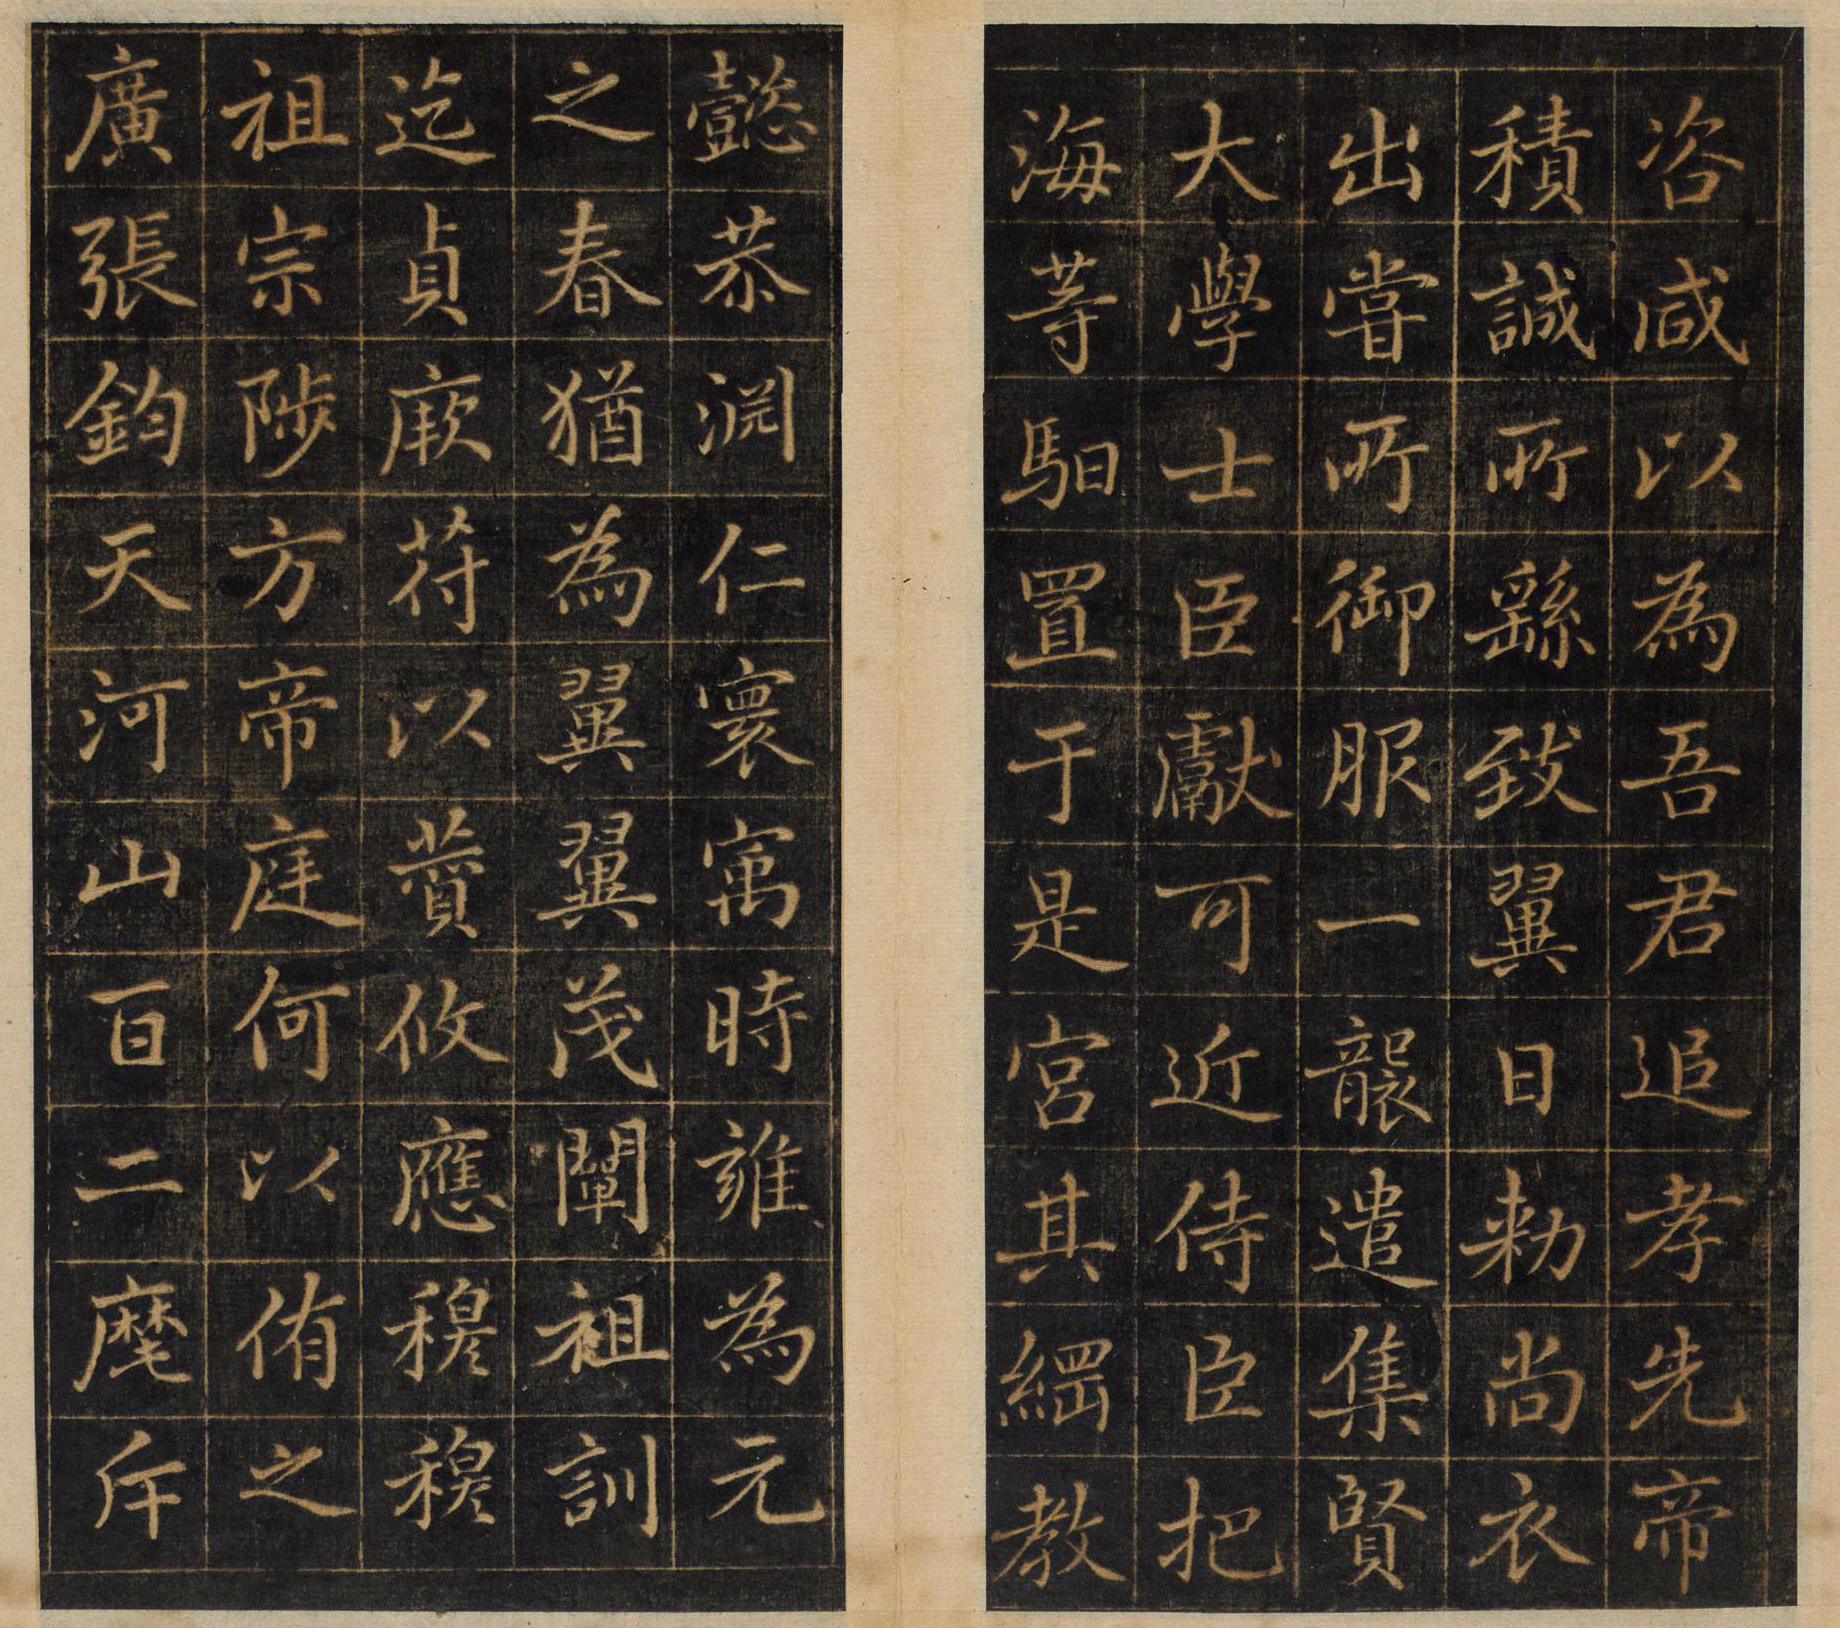 咨咸以為吾君追孝先帝
積誠所繇致翼日勑尚衣
出嘗所御服一襲遣集賢
大學士臣獻可近侍臣把
海等馹置于是宮其綱教
懿恭淵仁寰㝢時雍為元
之春猶為翼翼茂闡祖訓
迄貞厥符以蕡攸應穆穆
祖宗陟方帝庭何以侑之
廣張鈞天河山百二麾斥